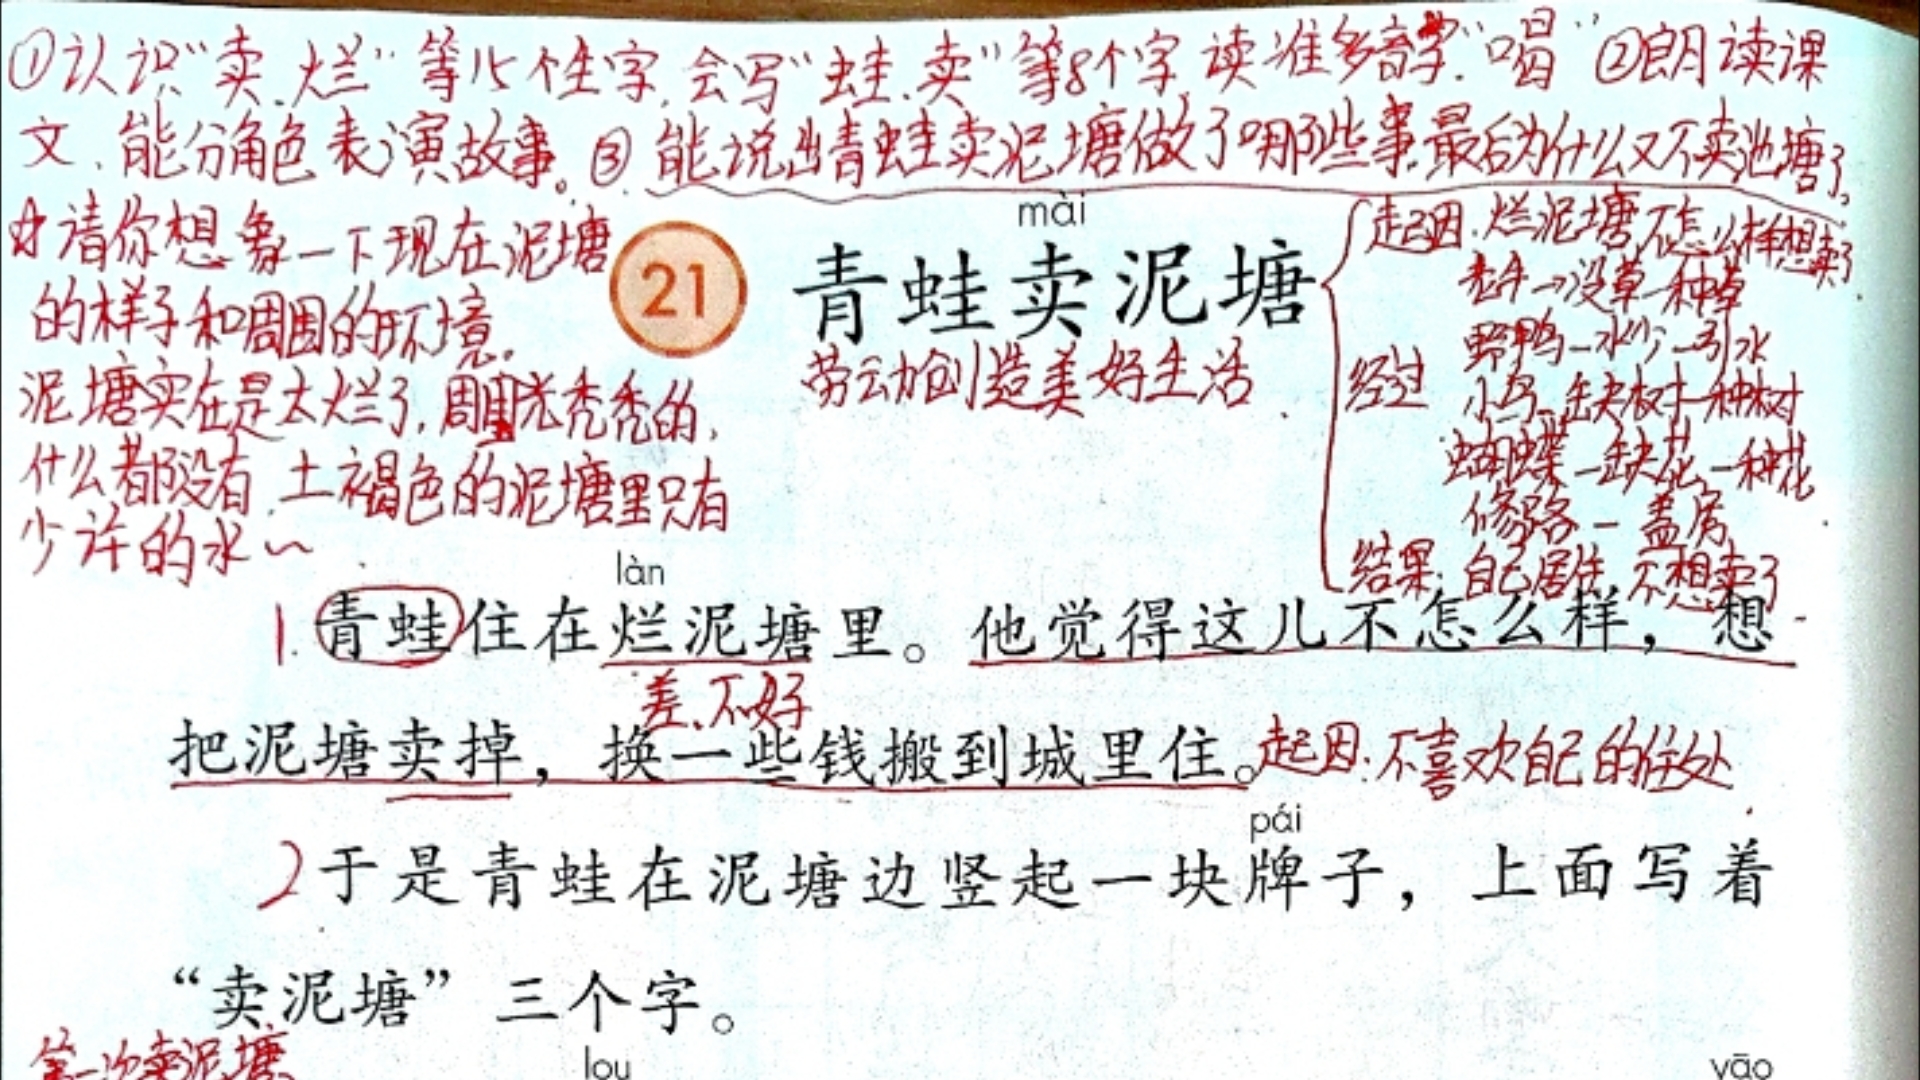 ①认识“卖、烂”等15个生字,会写“蛙、卖”等8个字,读准多音字“喝”②朗读课
文,能分角色表演故事。③能说出青蛙卖泥塘做了哪些事,最后为什么又不卖泥塘了。
☆请你想象一下现在泥塘
的样子和周围的环境。
泥塘实在是太烂了,周围光秃秃的,
什么都没有,土褐色的泥塘里只有
少许的水~
mài
21 青蛙卖泥塘
劳动创造美好生活
起因:烂泥塘,不怎么样想卖了
老牛→没草—种草
野鸭—水少—引水
经过 小鸟—缺树—种树
蝴蝶—缺花—种花
修路—盖房
结果:自己居住,不想卖了
làn
1.青蛙住在烂泥塘里。他觉得这儿不怎么样,想
差、不好
把泥塘卖掉,换一些钱搬到城里住。起因:不喜欢自己的住处
pái
2于是青蛙在泥塘边竖起一块牌子,上面写着
“卖泥塘”三个字。
第一次卖泥塘
lou yāo